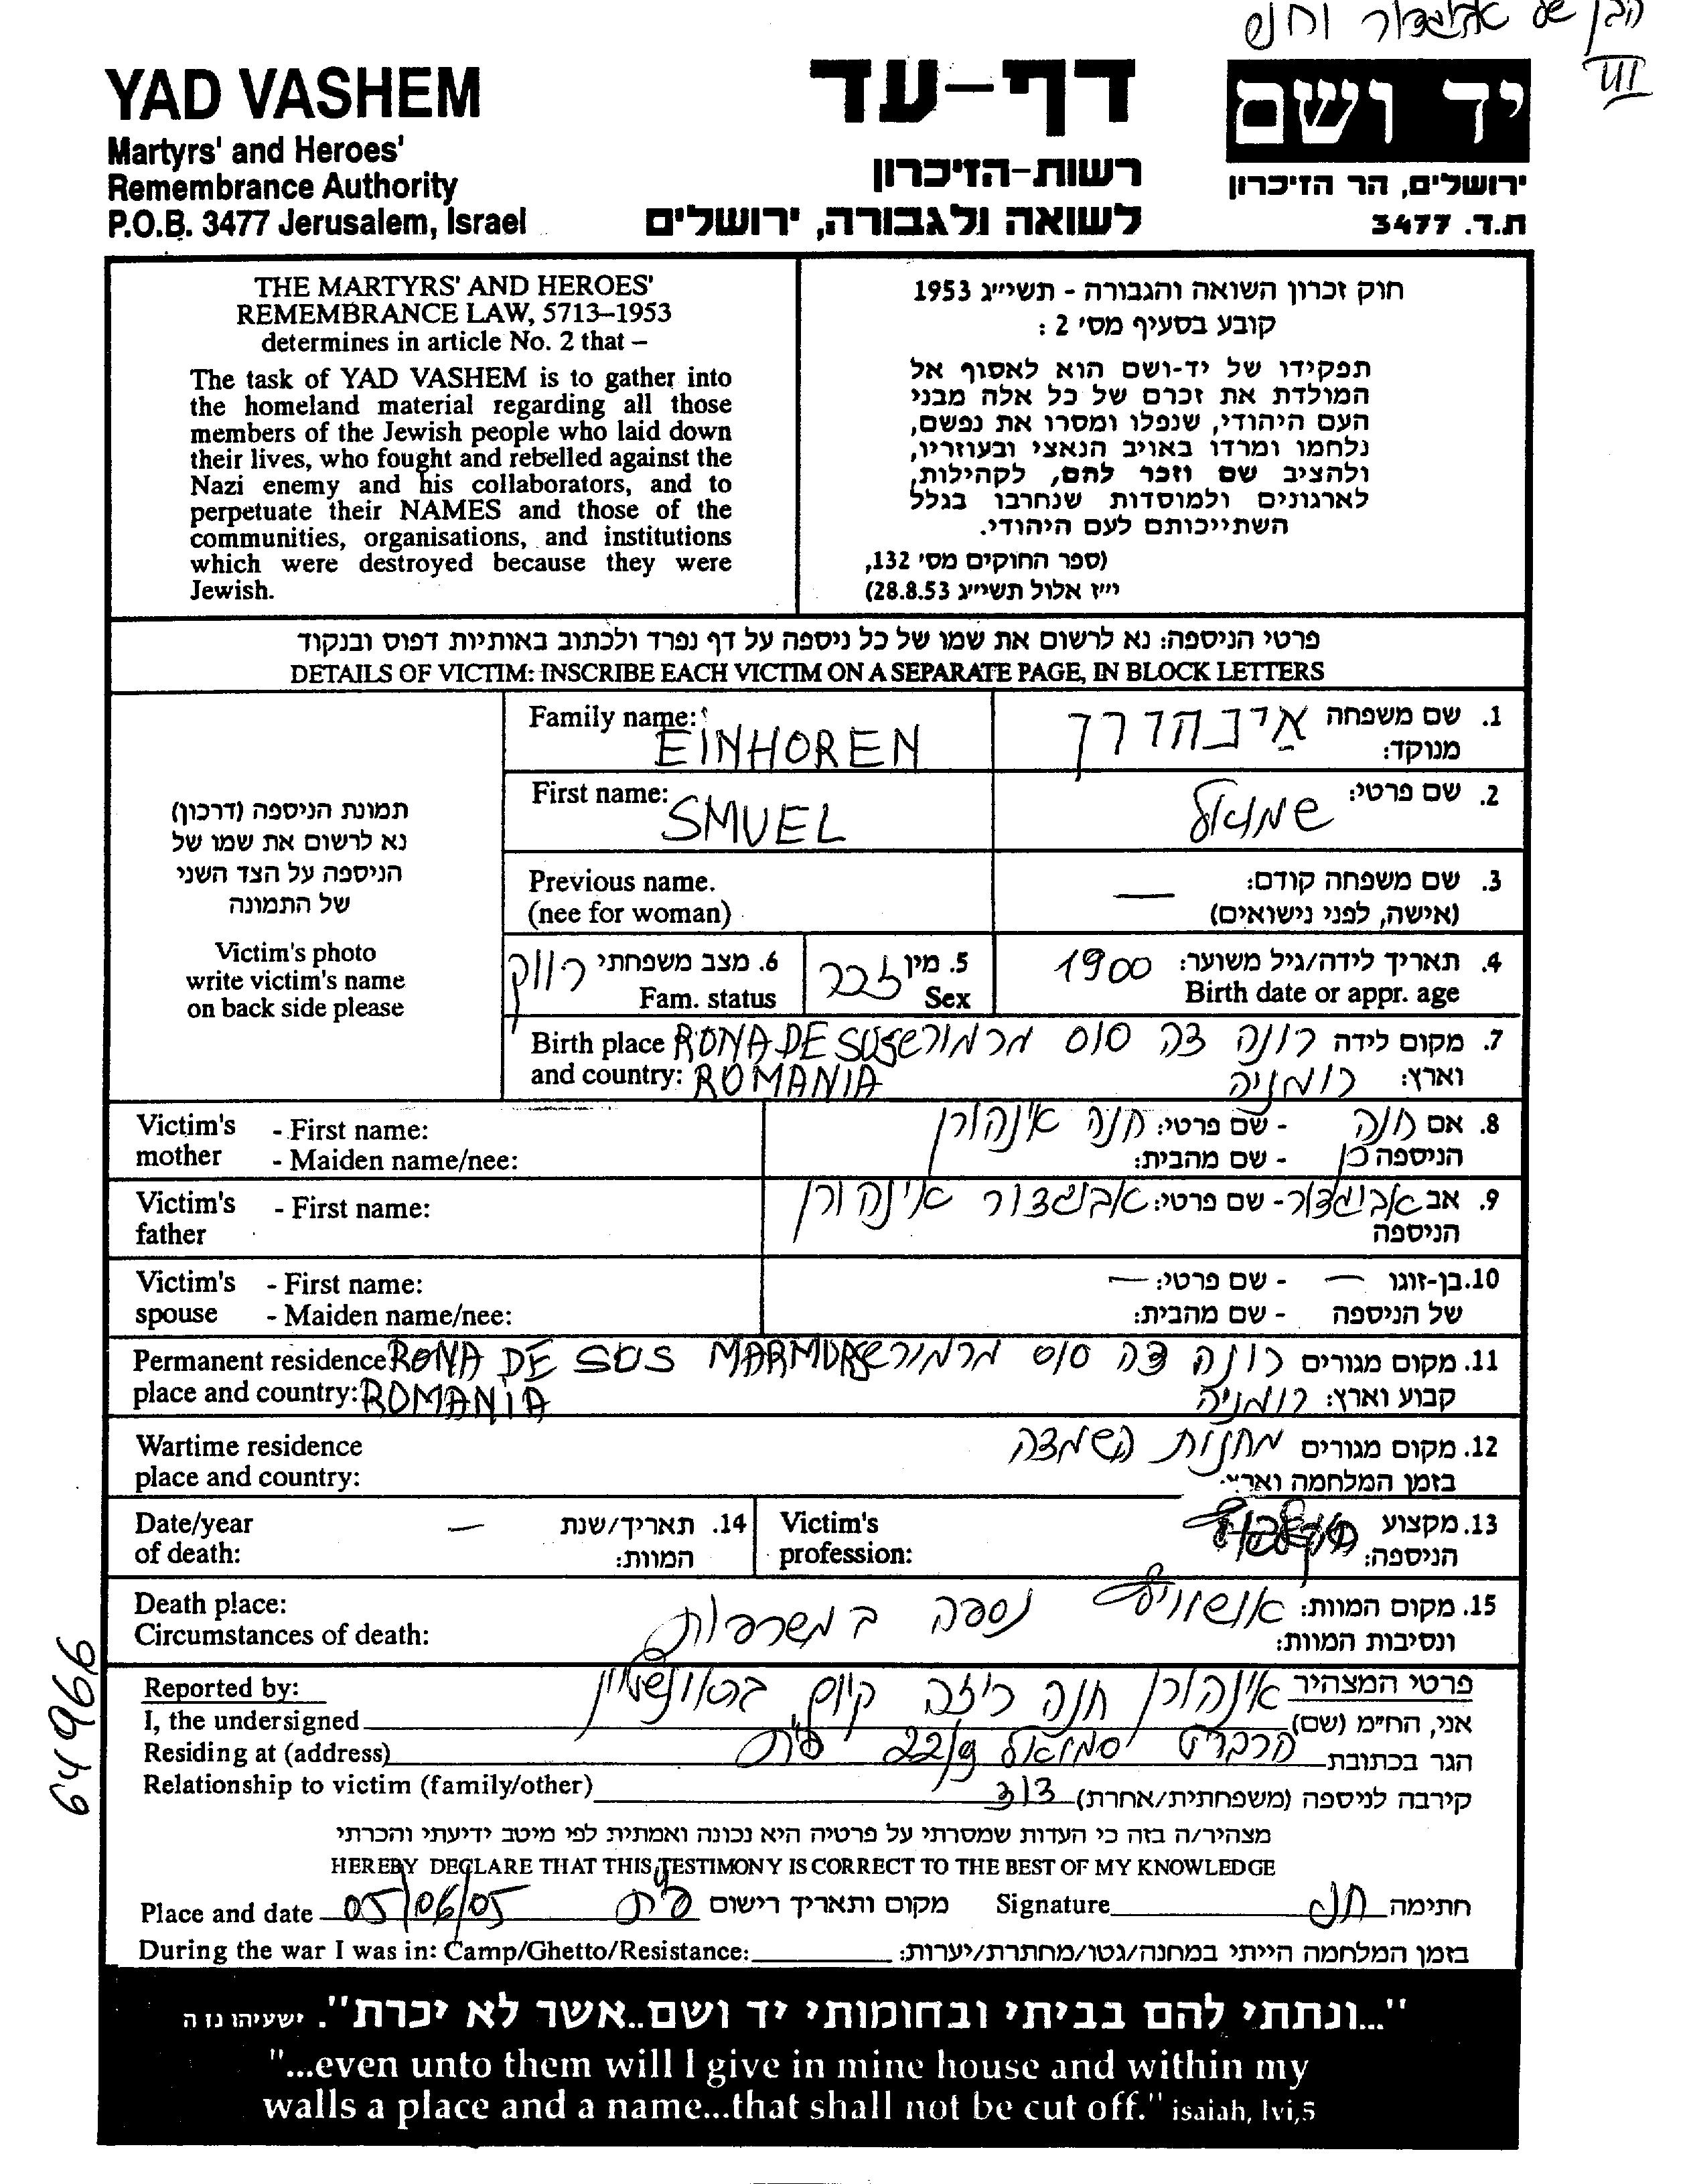 הבן של אביגדור וחנה
III
YAD VASHEM
Martyrs' and Heroes'
Remembrance Authority
P.O.B. 3477 Jerusalem, Israel
דף-עד
רשות-הזיכרון
לשואה ולגבורה, ירושלים
יד ושם
ירושלים, הר הזיכרון
ת.ד. 3477
THE MARTYRS' AND HEROES'
REMEMBRANCE LAW, 5713–1953
determines in article No. 2 that –
The task of YAD VASHEM is to gather into
the homeland material regarding all those
members of the Jewish people who laid down
their lives, who fought and rebelled against the
Nazi enemy and his collaborators, and to
perpetuate their NAMES and those of the
communities, organisations, and institutions
which were destroyed because they were
Jewish.
חוק זכרון השואה והגבורה - תשי״ג 1953
קובע בסעיף מס' 2 :
תפקידו של יד-ושם הוא לאסוף אל
המולדת את זכרם של כל אלה מבני
העם היהודי, שנפלו ומסרו את נפשם,
נלחמו ומרדו באויב הנאצי ובעוזריו,
ולהציב שם וזכר להם, לקהילות,
לארגונים ולמוסדות שנחרבו בגלל
השתייכותם לעם היהודי.
(ספר החוקים מס' 132,
י״ז אלול תשי״ג 28.8.53)
פרטי הניספה: נא לרשום את שמו של כל ניספה על דף נפרד ולכתוב באותיות דפוס ובנקוד
DETAILS OF VICTIM: INSCRIBE EACH VICTIM ON A SEPARATE PAGE, IN BLOCK LETTERS
תמונת הניספה (דרכון)
נא לרשום את שמו של
הניספה על הצד השני
של התמונה
Victim's photo
write victim's name
on back side please
Family name: EINHOREN
1. שם משפחה מנוקד: אינהורן
First name: SMUEL
2. שם פרטי: שמואל
Previous name.
(nee for woman)
3. שם משפחה קודם: —
(אישה, לפני נישואים)
6. מצב משפחתי רווק
Fam. status
5. מין זכר
Sex
4. תאריך לידה/גיל משוער: 1900
Birth date or appr. age
Birth place RONA DE SUS
and country: ROMANIA
7. מקום לידה רונה דה סוס מרמורש
וארץ: רומניה
Victim's mother - First name:
- Maiden name/nee:
8. אם חנה - שם פרטי: חנה אינהורן
הניספה - שם מהבית:
Victim's father - First name:
9. אב אביגדור - שם פרטי: אביגדור אינהורן
הניספה
Victim's spouse - First name:
- Maiden name/nee:
10. בן-זוגו — - שם פרטי: —
של הניספה - שם מהבית:
Permanent residence RONA DE SUS MARMUR
place and country: ROMANIA
11. מקום מגורים רונה דה סוס מרמורש
קבוע וארץ: רומניה
Wartime residence
place and country:
12. מקום מגורים מחנות השמדה
בזמן המלחמה וארץ:
Date/year
of death:
14. תאריך/שנת —
המוות:
Victim's
profession:
13. מקצוע
הניספה:
Death place:
Circumstances of death:
15. מקום המוות: אושוויץ נספה במשרפות
ונסיבות המוות:
Reported by:
I, the undersigned
Residing at (address)
Relationship to victim (family/other)
פרטי המצהיר
אני, הח״מ (שם) אינהורן חנה ריזה קיום, בראונשטיין
הגר בכתובת הרברט סמואל 22/9 פ״ת
קירבה לניספה (משפחתית/אחרת) דוד
מצהיר/ה בזה כי העדות שמסרתי על פרטיה היא נכונה ואמתית לפי מיטב ידיעתי והכרתי
HEREBY DECLARE THAT THIS TESTIMONY IS CORRECT TO THE BEST OF MY KNOWLEDGE
Place and date 05/06/05 מקום ותאריך רישום פ״ת
Signature חתימה חנה
During the war I was in: Camp/Ghetto/Resistance: בזמן המלחמה הייתי במחנה/גטו/מחתרת/יערות:
64966
"...ונתתי להם בביתי ובחומותי יד ושם..אשר לא יכרת". ישעיהו נו ה
"...even unto them will I give in mine house and within my
walls a place and a name...that shall not be cut off." isaiah, lvi,5